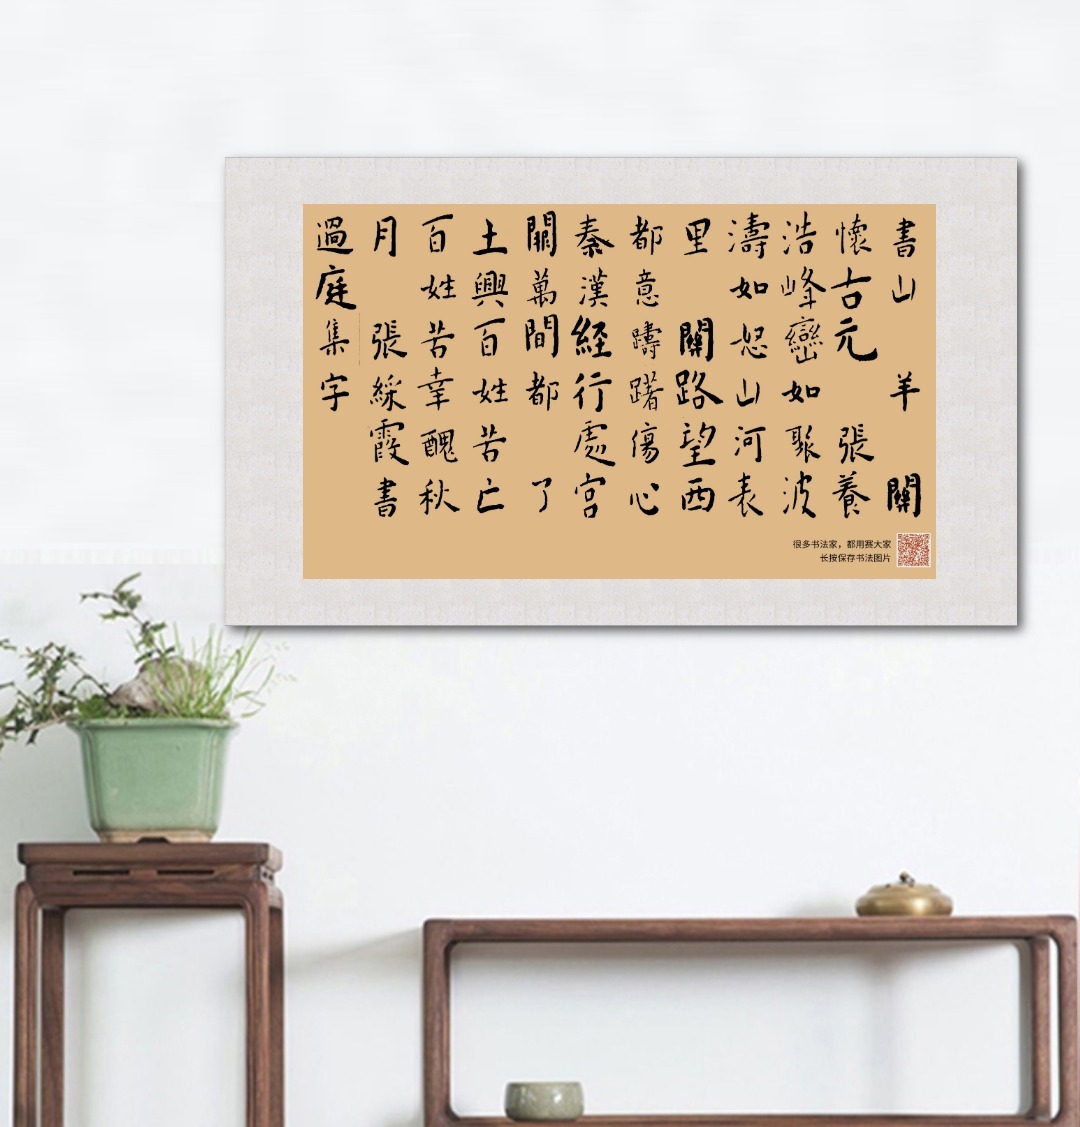 書山 羊 關
懷古元 張養
浩峰巒如聚波
濤如怒山河表
里 關路望西
都意躊躇傷心
秦漢経行處宮
闕萬間都 了
土興百姓苦亡
百姓苦辛醜秋
月 張綵霞書
過庭集字
很多书法家，都用赛大家
长按保存书法图片